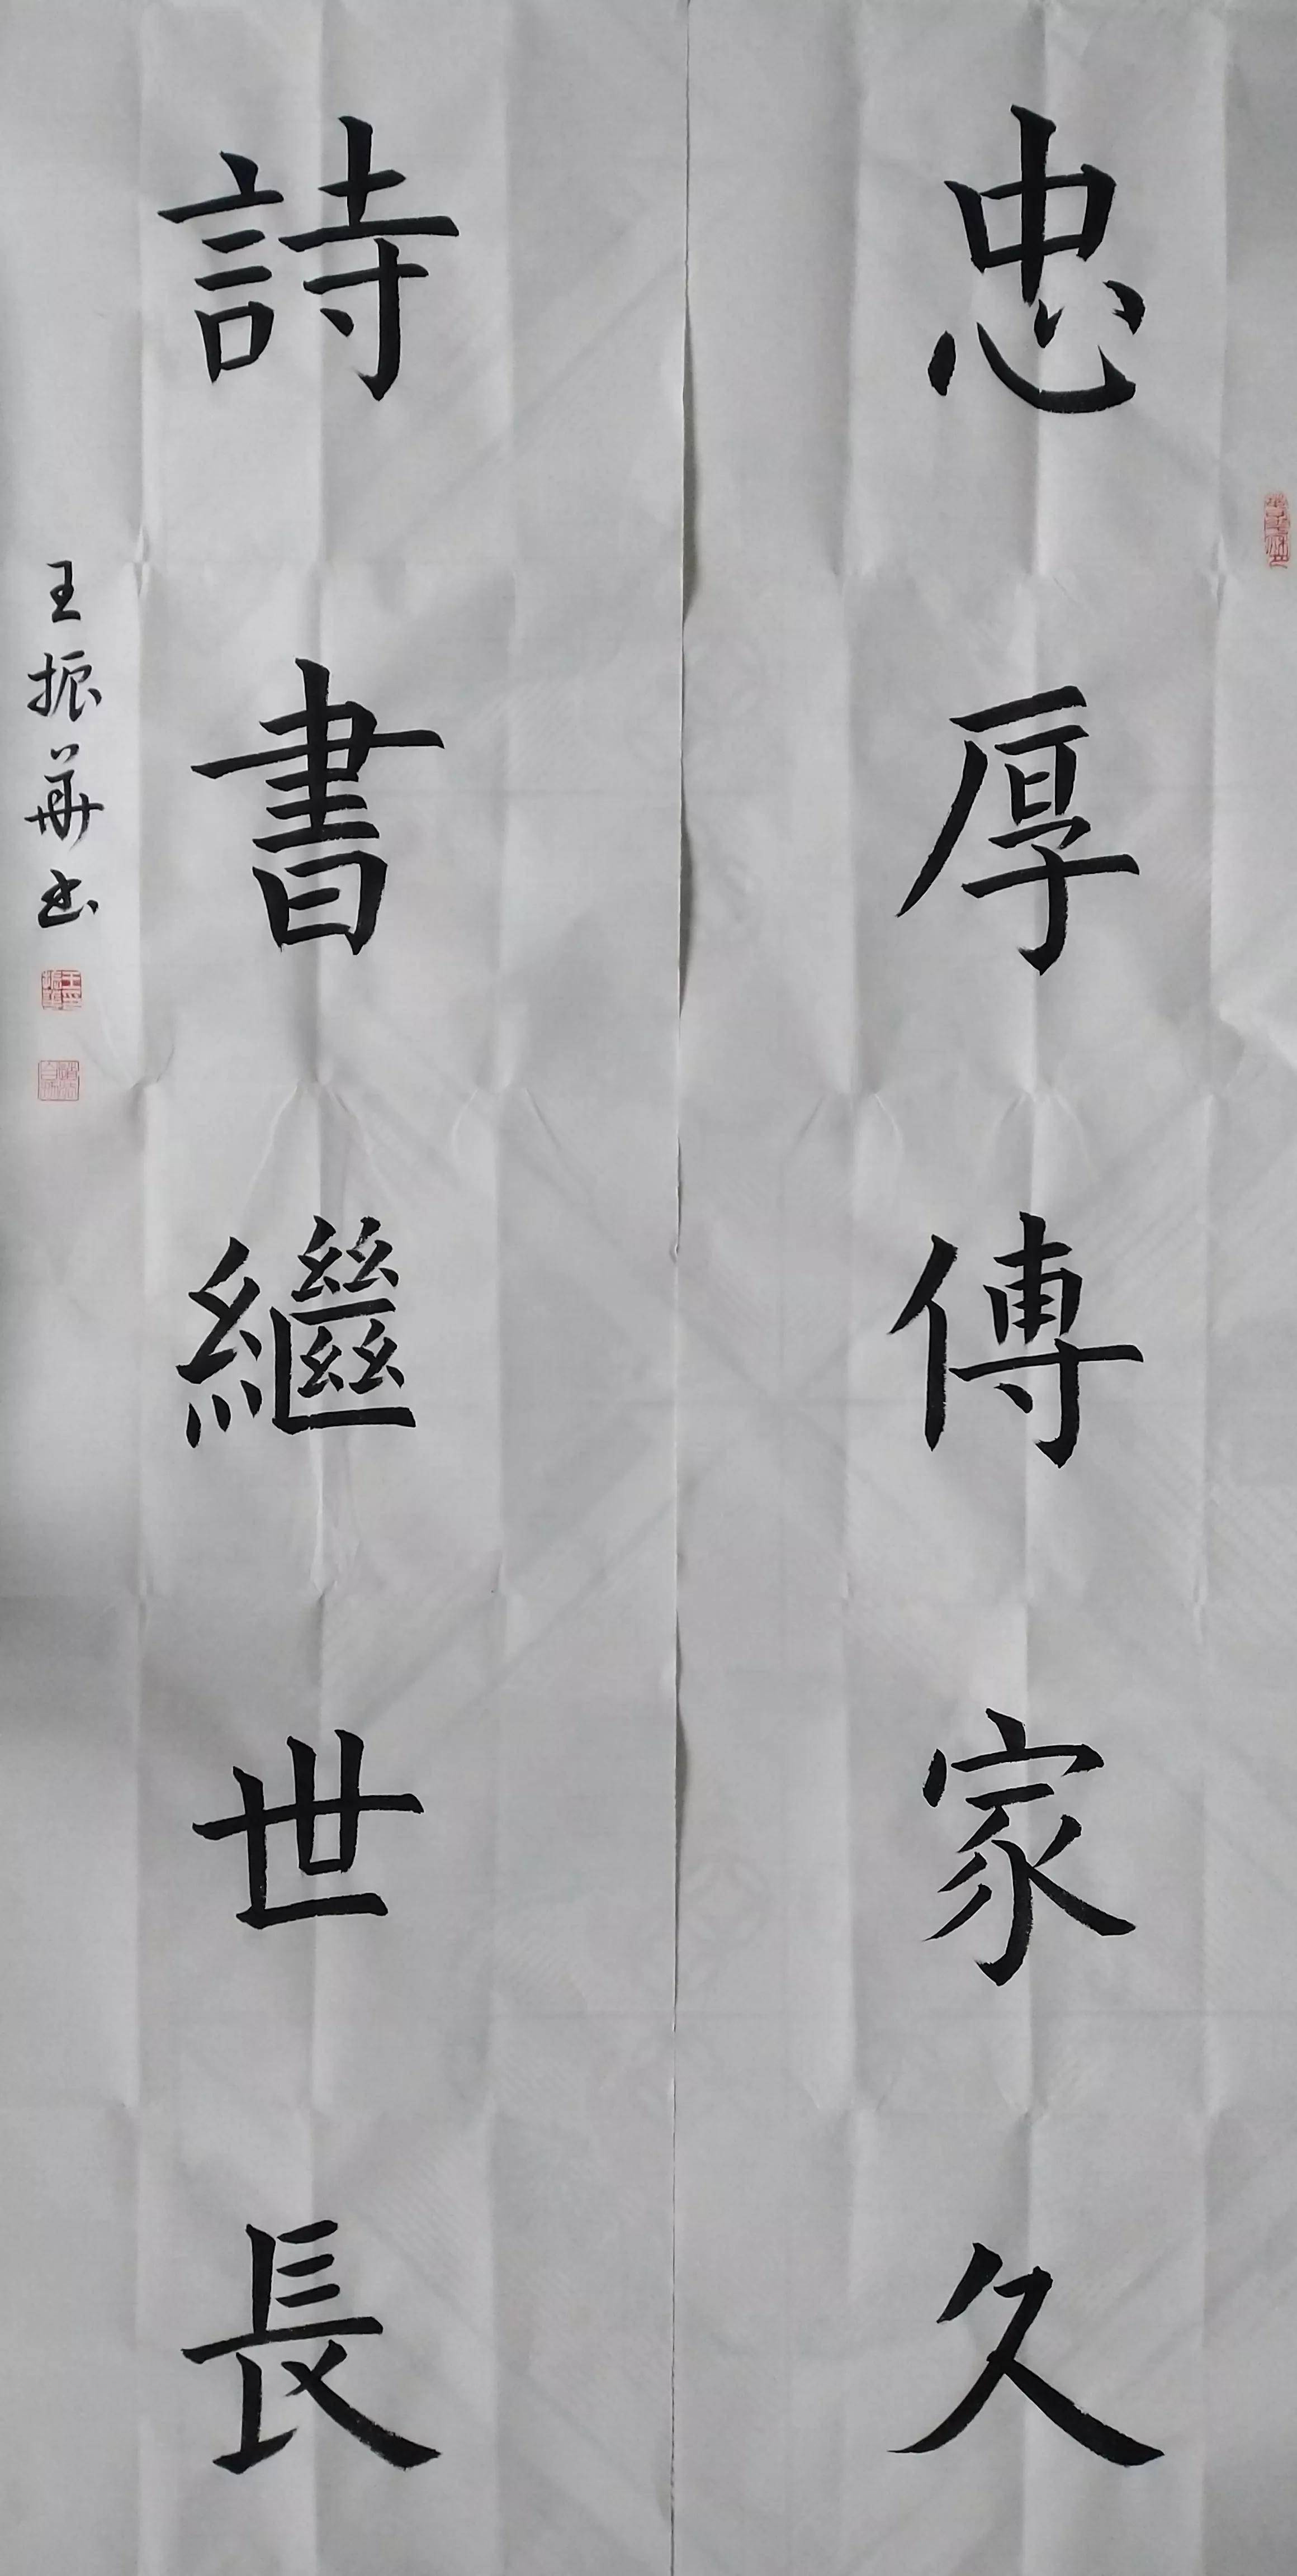 忠厚傳家久
詩書繼世長
王振華书